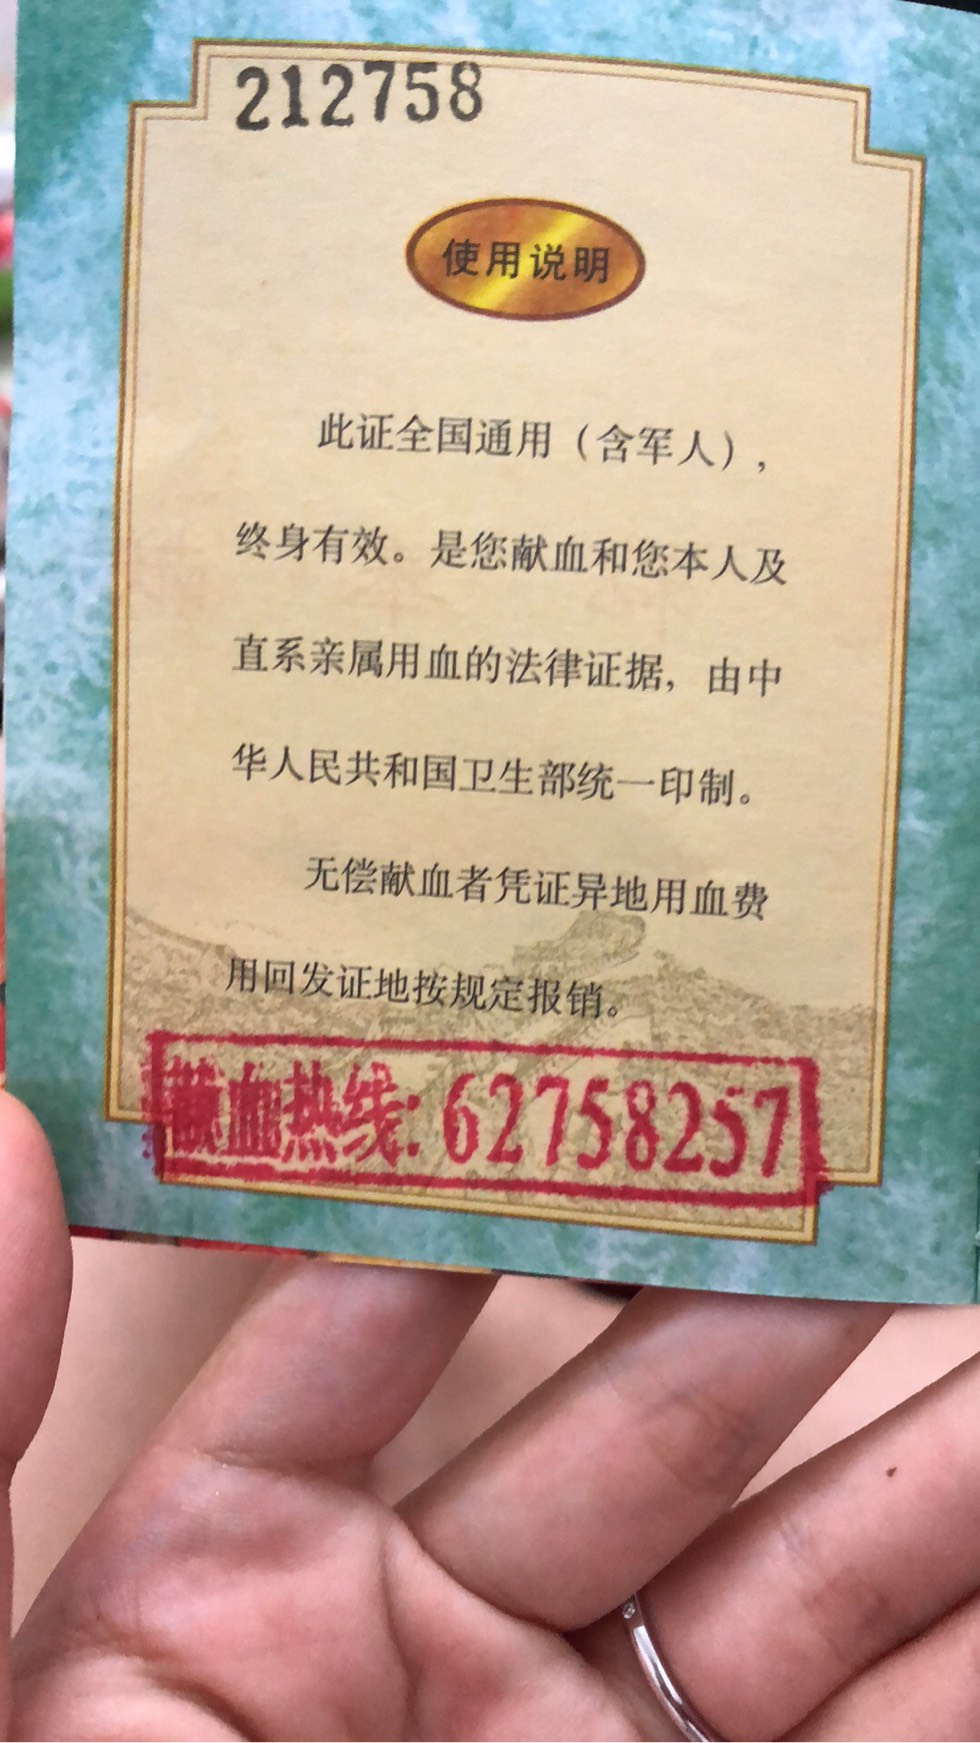 212758
使用说明
此证全国通用（含军人），
终身有效。是您献血和您本人及
直系亲属用血的法律证据，由中
华人民共和国卫生部统一印制。
无偿献血者凭证异地用血费
用回发证地按规定报销。
献血热线：62758257